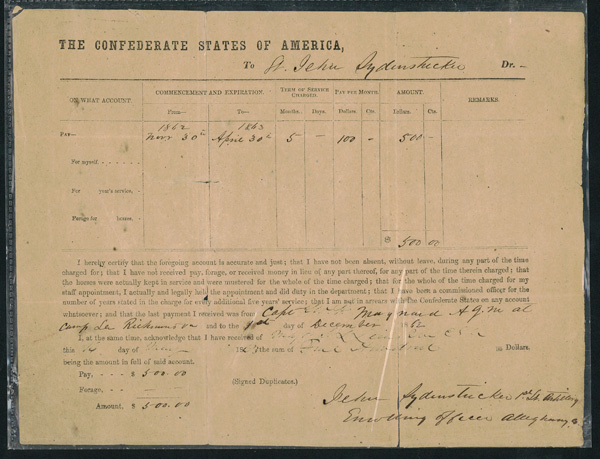 THE CONFEDERATE STATES OF AMERICA,
To Lt. Jehu Sydenstricker Dr.-
ON WHAT ACCOUNT. COMMENCEMENT AND EXPIRATION. TERM OF SERVICE CHARGED. PAY PER MONTH. AMOUNT. REMARKS.
From— To— Months. Days. Dollars. Cts. Dollars. Cts.
1862 1863
Pay— Novr 30th April 30th 5 – 100 – 500 –
For myself
For year's service,
Forage for horses.
$ 500 00
I hereby certify that the foregoing account is accurate and just; that I have not been absent, without leave, during any part of the time
charged for; that I have not received pay, forage, or received money in lieu of any part thereof, for any part of the time therein charged; that
the horses were actually kept in service and were mustered for the whole of the time charged; that for the whole of the time charged for my
staff appointment, I actually and legally held the appointment and did duty in the department; that I have been a commissioned officer for the
number of years stated in the charge for every additional five years' service; that I am not in arrears with the Confederate States on any account
whatsoever; and that the last payment I received was from Capt Maynard A.Q.M. at
Camp Lee Richmond and to the day of December 62
I, at the same time, acknowledge that I have received of
this day of the sum of Five Hundred Dollars.
being the amount in full of said account.
Pay, $ 500.00
Forage,
Amount. $ 500.00
(Signed Duplicates.)
Jehu Sydenstricker 1st Lt. Artillery
Enrolling officer Alleghany